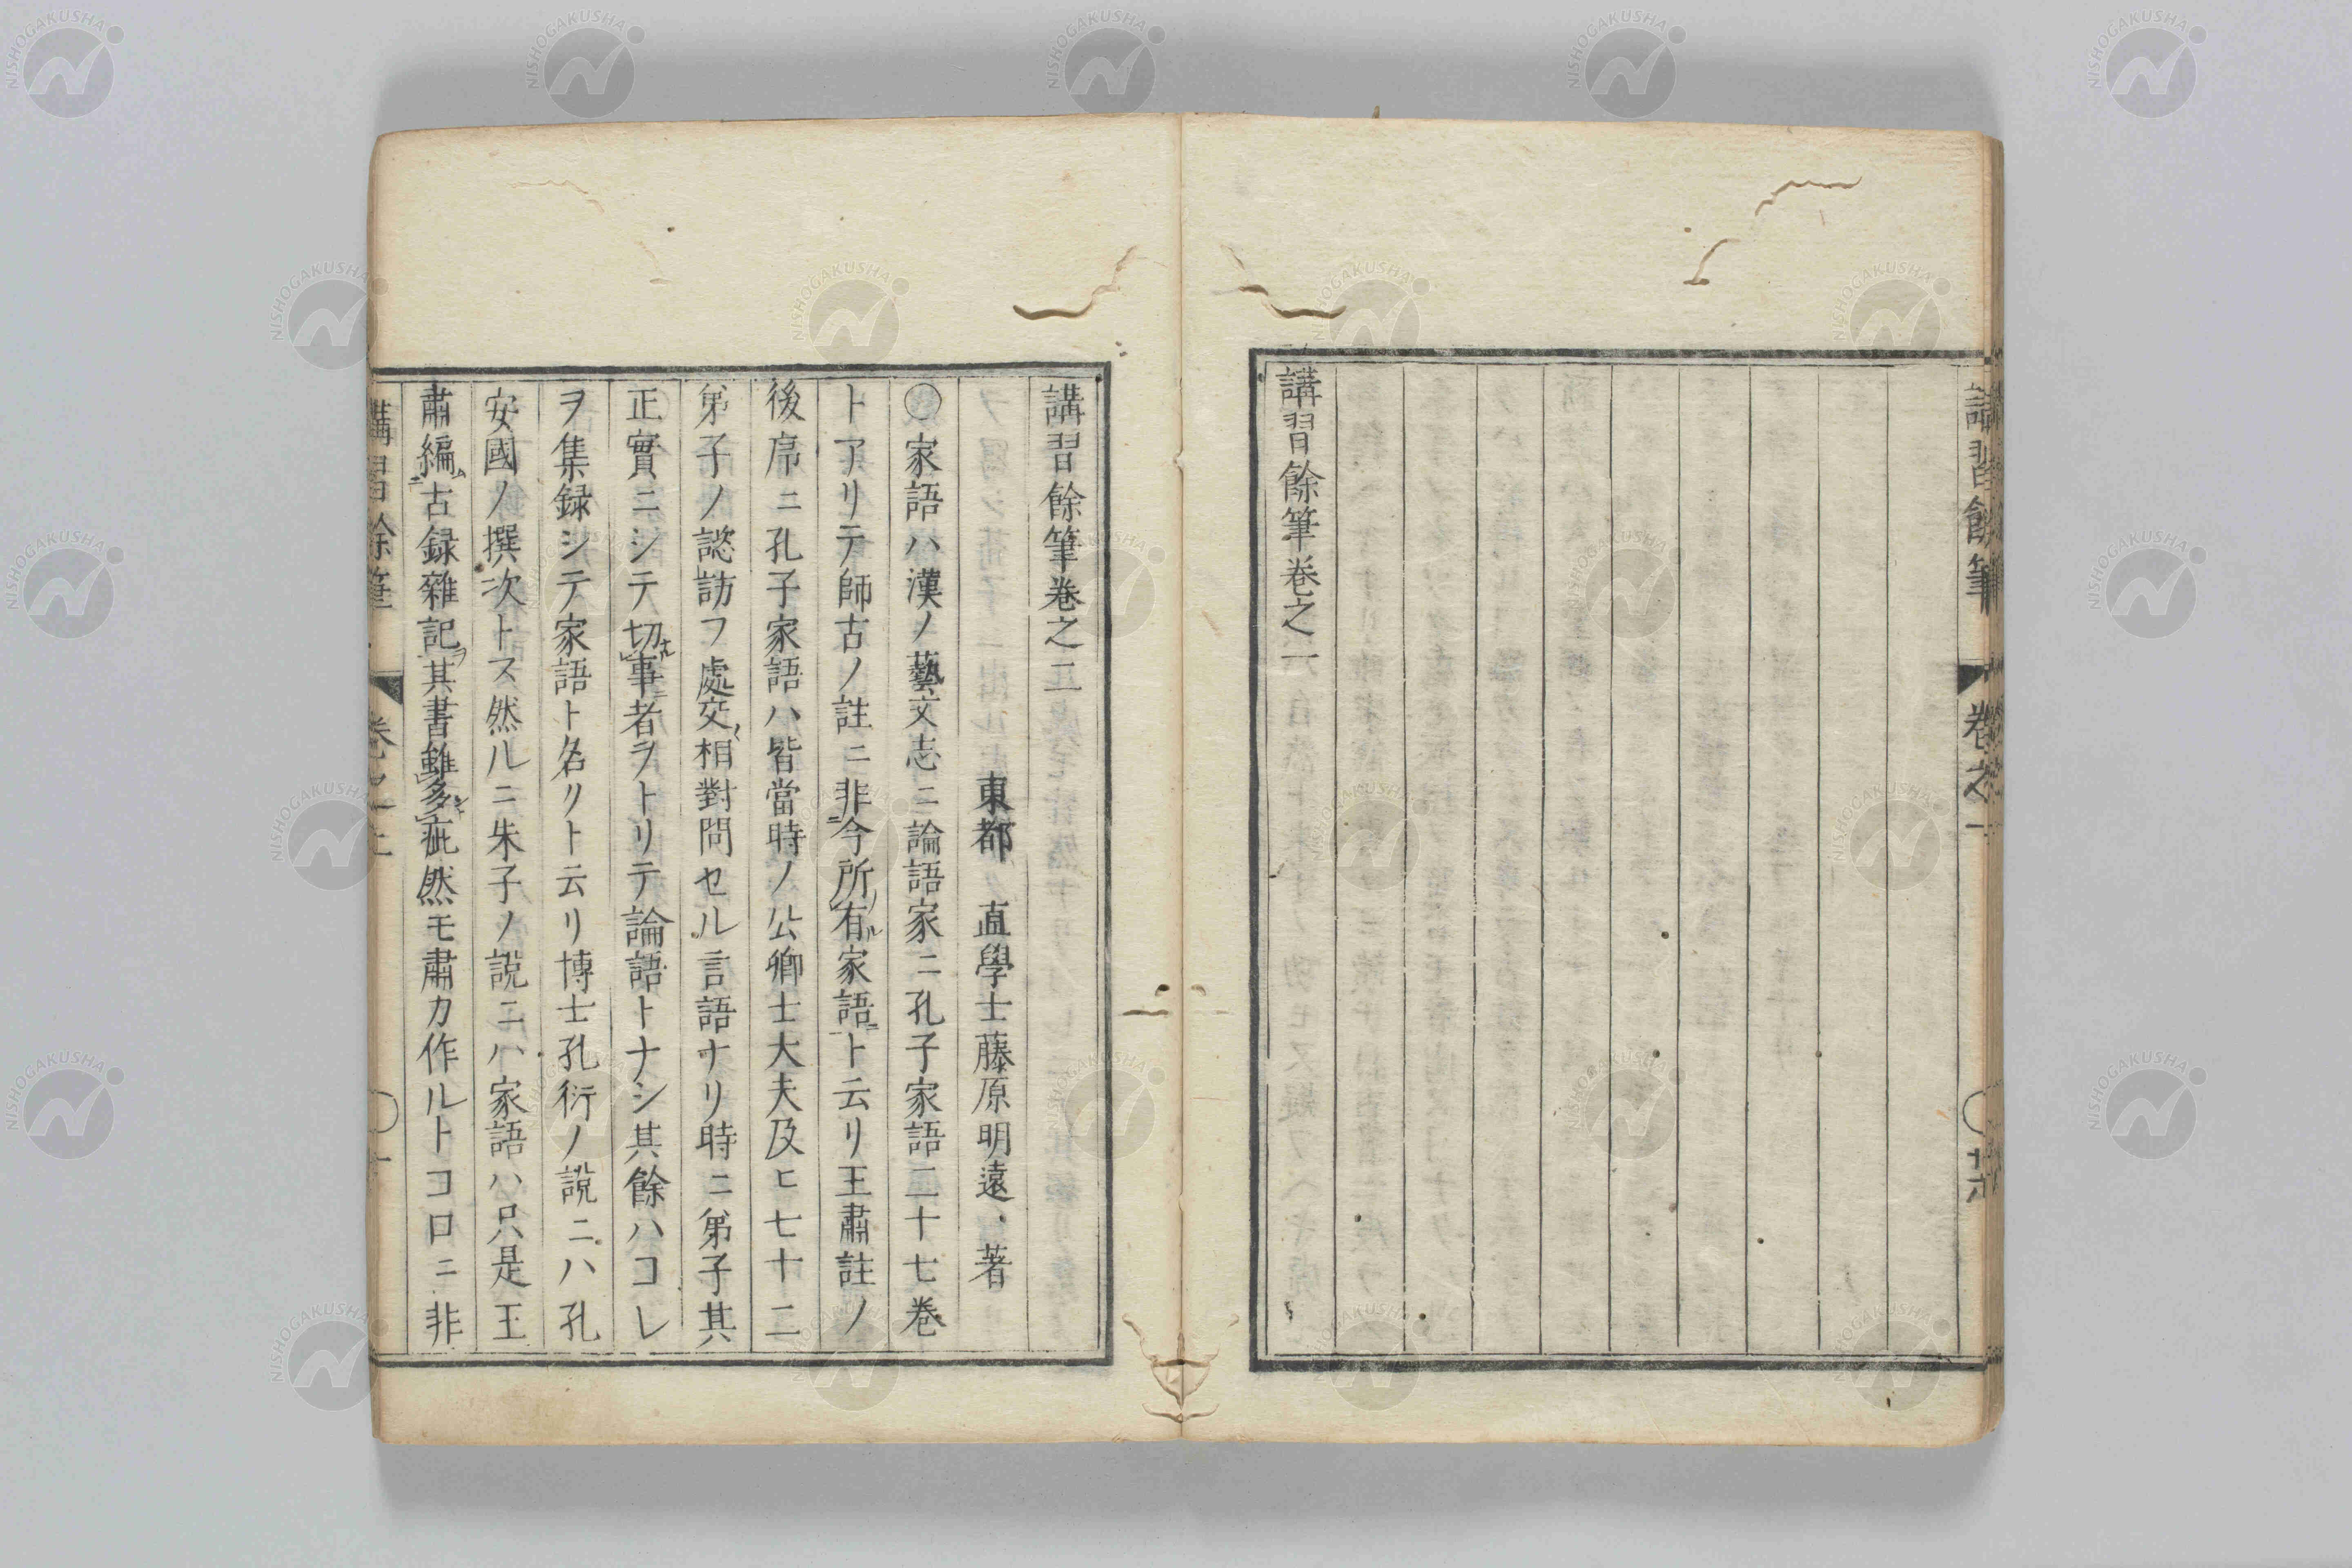 講習餘筆
卷之一
講習餘筆卷之一
講習餘筆卷之二
東都 直學士藤原明遠 著
〇家語ハ漢ノ藝文志ニ論語家ニ孔子家語二十七卷
トアリテ師古ノ註ニ非今所有家語ト云リ王肅註ノ
後序ニ孔子家語ハ皆當時ノ公卿士大夫及ヒ七十二
弟子ノ諮訪フ處交相對問セル言語ナリ時ニ弟子其
正實ニシテ切事者ヲトリテ論語トナシ其餘ハコレ
ヲ集録シテ家語ト名クト云リ博士孔衍ノ説ニハ孔
安國ノ撰次トス然ルニ朱子ノ説ニハ家語ハ只是王
肅編古録雜記其書雖多疵然モ肅カ作ルトコロニ非
講習餘筆
NISHOGAKUSHA